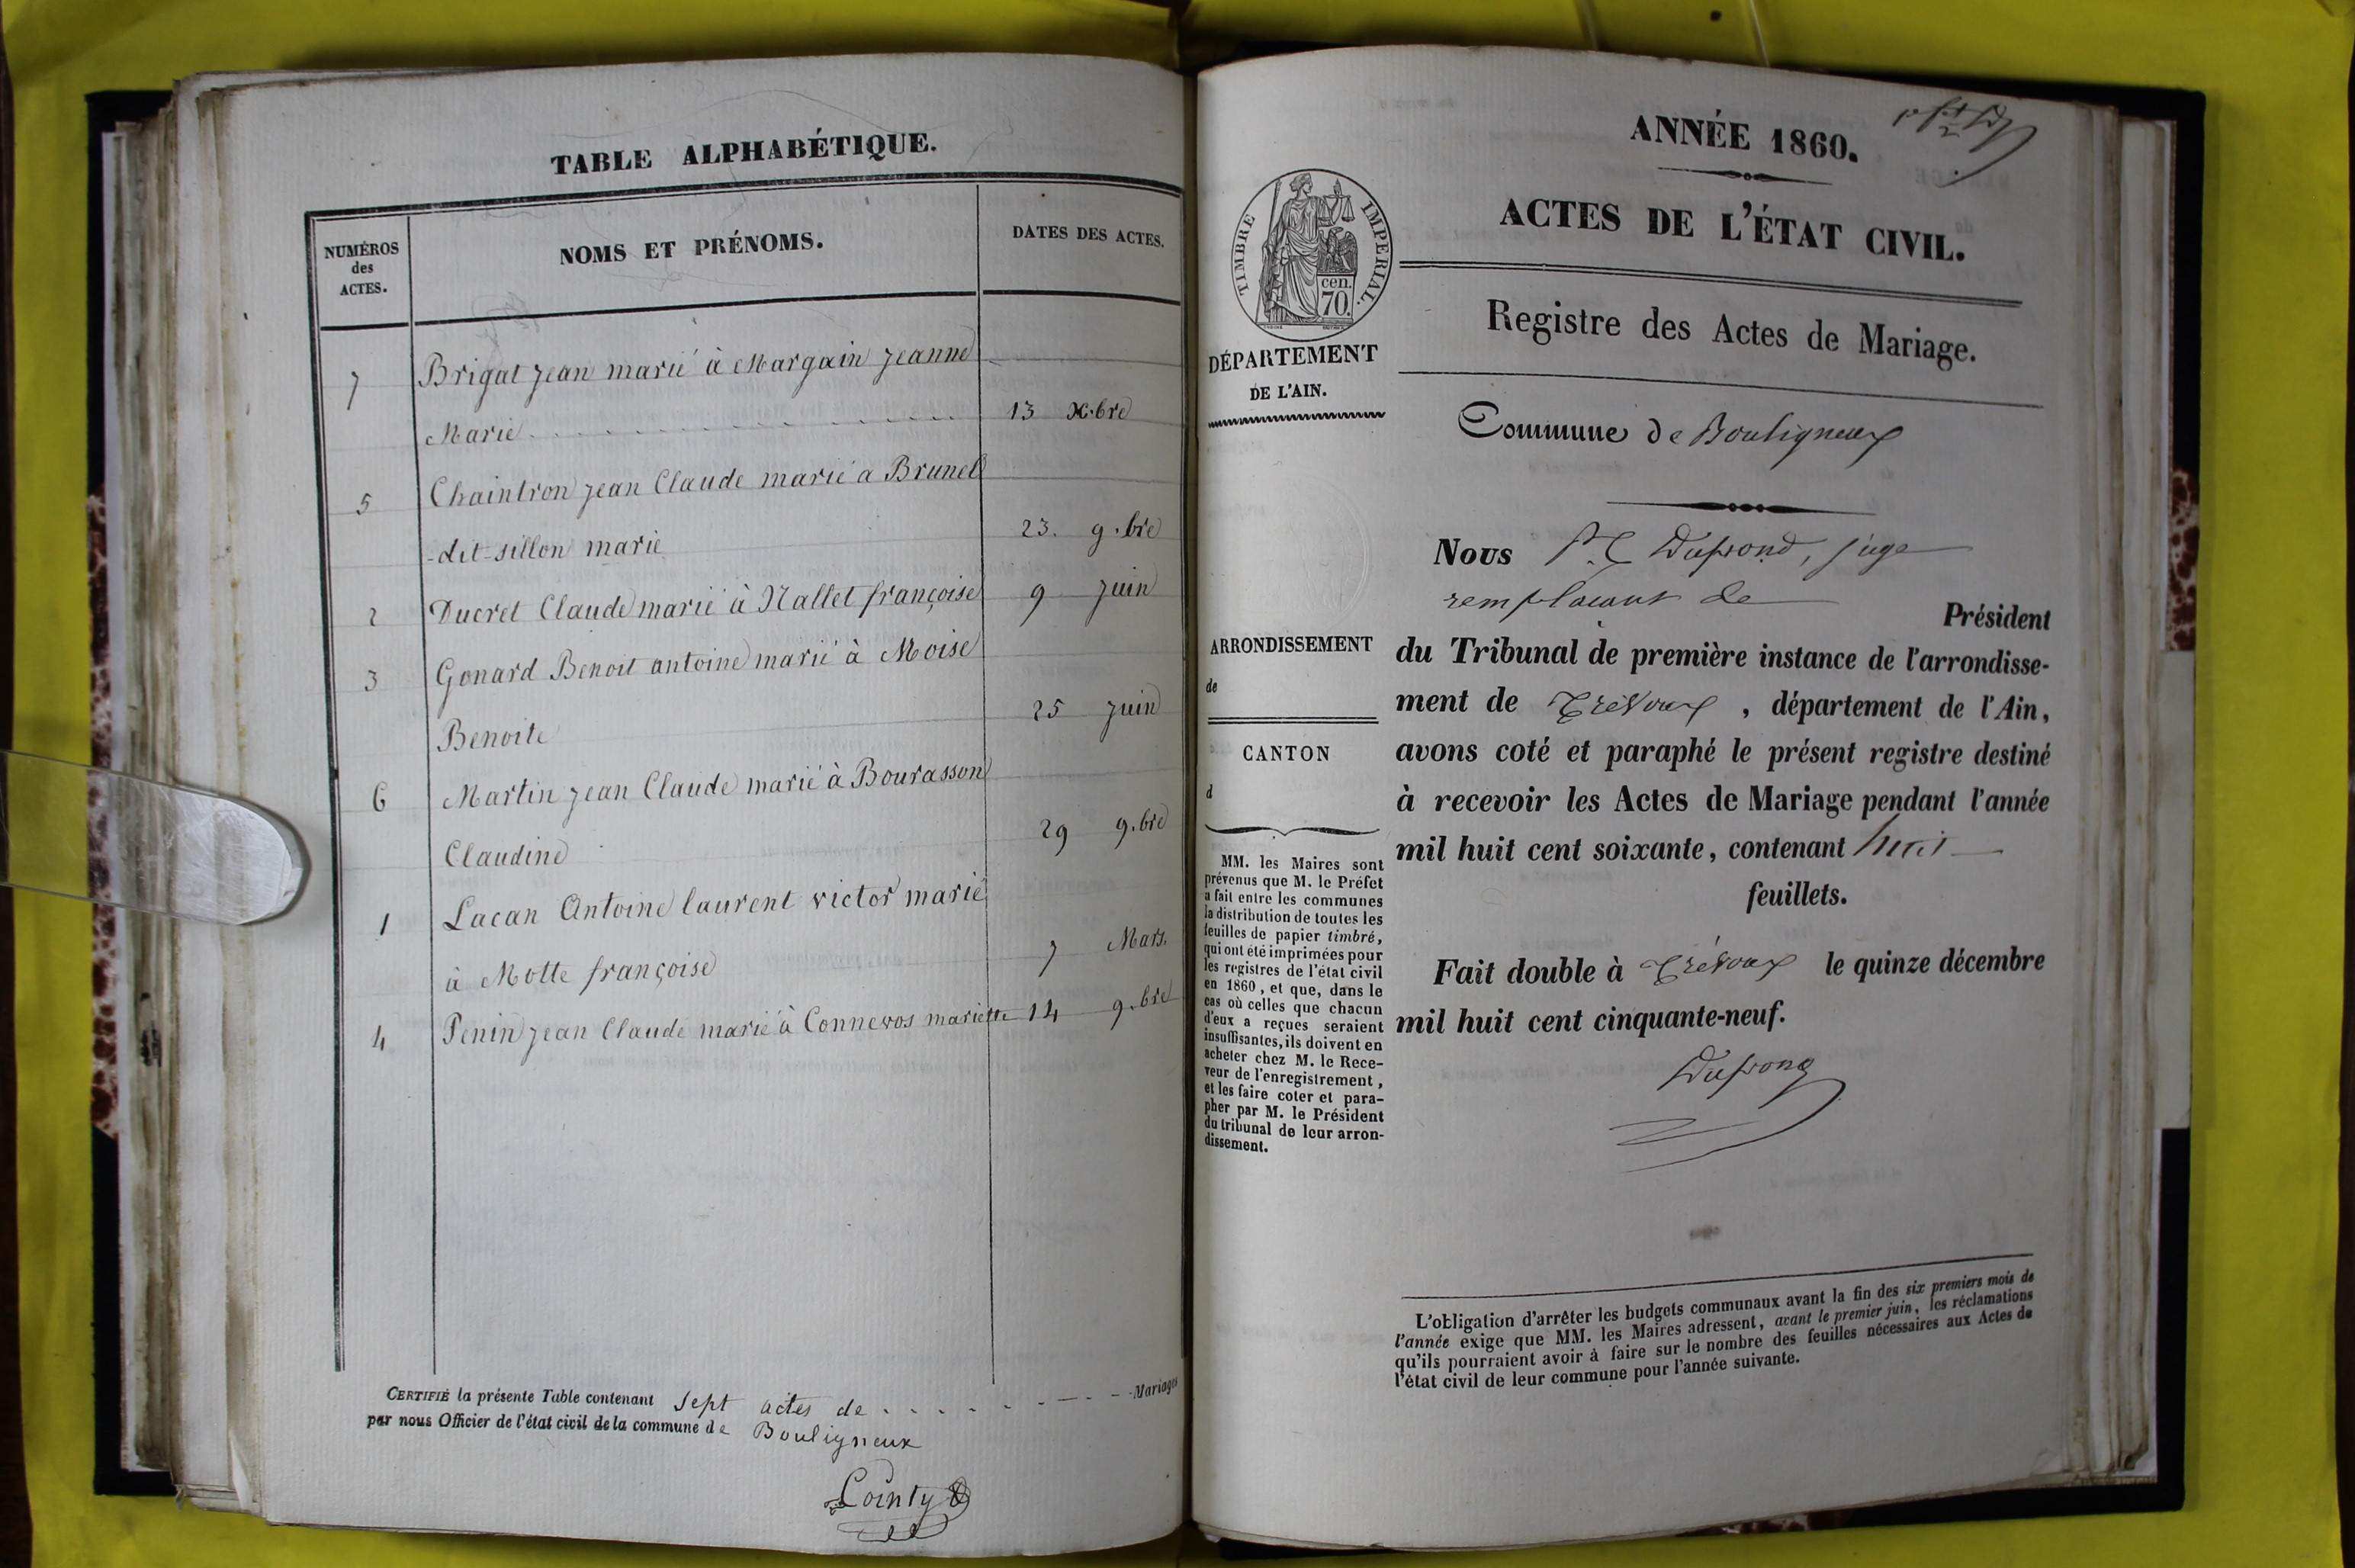 TABLE ALPHABÉTIQUE.
NUMÉROS
des
ACTES.
NOMS ET PRÉNOMS.
DATES DES ACTES.
7 Brigat jean marié à Margain jeanne
Marie 13 X.bre
5 Chaintron jean Claude marié a Brunet
-dit-sillon marie 23. 9.bre
2 Ducret Claude marié à Nallet françoise 9 juin
3 Gonard Benoit antoine marié à Moise
Benoite 25 juin
6 Martin jean Claude marié à Bourasson
Claudine 29 9.bre
1 Lacan Antoine laurent victor marié
à Motte françoise 7 Mars.
4 Penin jean Claude marié à Connevos mariette 14 9.bre
CERTIFIÉ la présente Table contenant sept actes de Mariages
par nous Officier de l'état civil de la commune de Bouligneux
Cointy
ANNÉE 1860.
ACTES DE L'ÉTAT CIVIL.
TIMBRE IMPERIAL.
cen.
70.
Registre des Actes de Mariage.
DÉPARTEMENT
DE L'AIN.
Commune de Bouligneux
Nous Dufrond, juge
remplacant le
Président
du Tribunal de première instance de l'arrondisse-
ment de Trévoux, département de l'Ain,
avons coté et paraphé le présent registre destiné
à recevoir les Actes de Mariage pendant l'année
mil huit cent soixante, contenant huit
feuillets.
Fait double à Trévoux le quinze décembre
mil huit cent cinquante-neuf.
Dufrond
ARRONDISSEMENT
de
CANTON
d
MM. les Maires sont
prévenus que M. le Préfet
a fait entre les communes
la distribution de toutes les
feuilles de papier timbré,
qui ont été imprimées pour
les registres de l'état civil
en 1860, et que, dans le
cas où celles que chacun
d'eux a reçues seraient
insuffisantes, ils doivent en
acheter chez M. le Rece-
veur de l'enregistrement,
et les faire coter et para-
pher par M. le Président
du tribunal de leur arron-
dissement.
L'obligation d'arrêter les budgets communaux avant la fin des six premiers mois de
l'année exige que MM. les Maires adressent, avant le premier juin, les réclamations
qu'ils pourraient avoir à faire sur le nombre des feuilles nécessaires aux Actes de
l'état civil de leur commune pour l'année suivante.